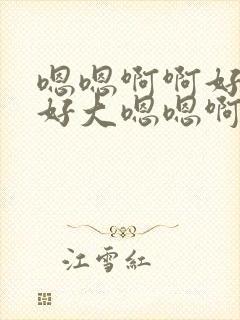 嗯嗯啊啊好
好大嗯嗯啊
江雪红